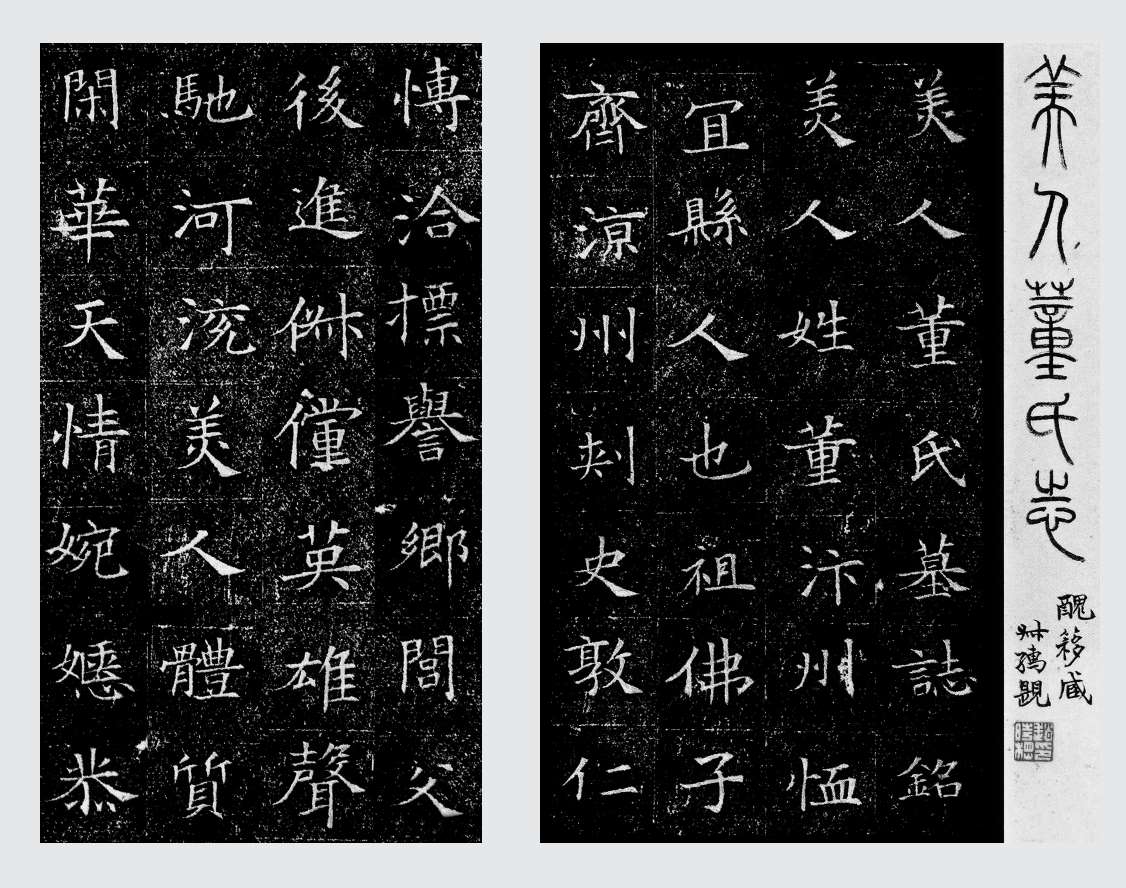 美人董氏志
醜簃臧
題
美人董氏墓誌銘
美人姓董汴州恤
冝縣人也祖佛子
齊涼州刾史敦仁
愽洽摽譽鄉閭父
後進俶儻英雄聲
馳河渷美人體質
閑華天情婉嫕恭